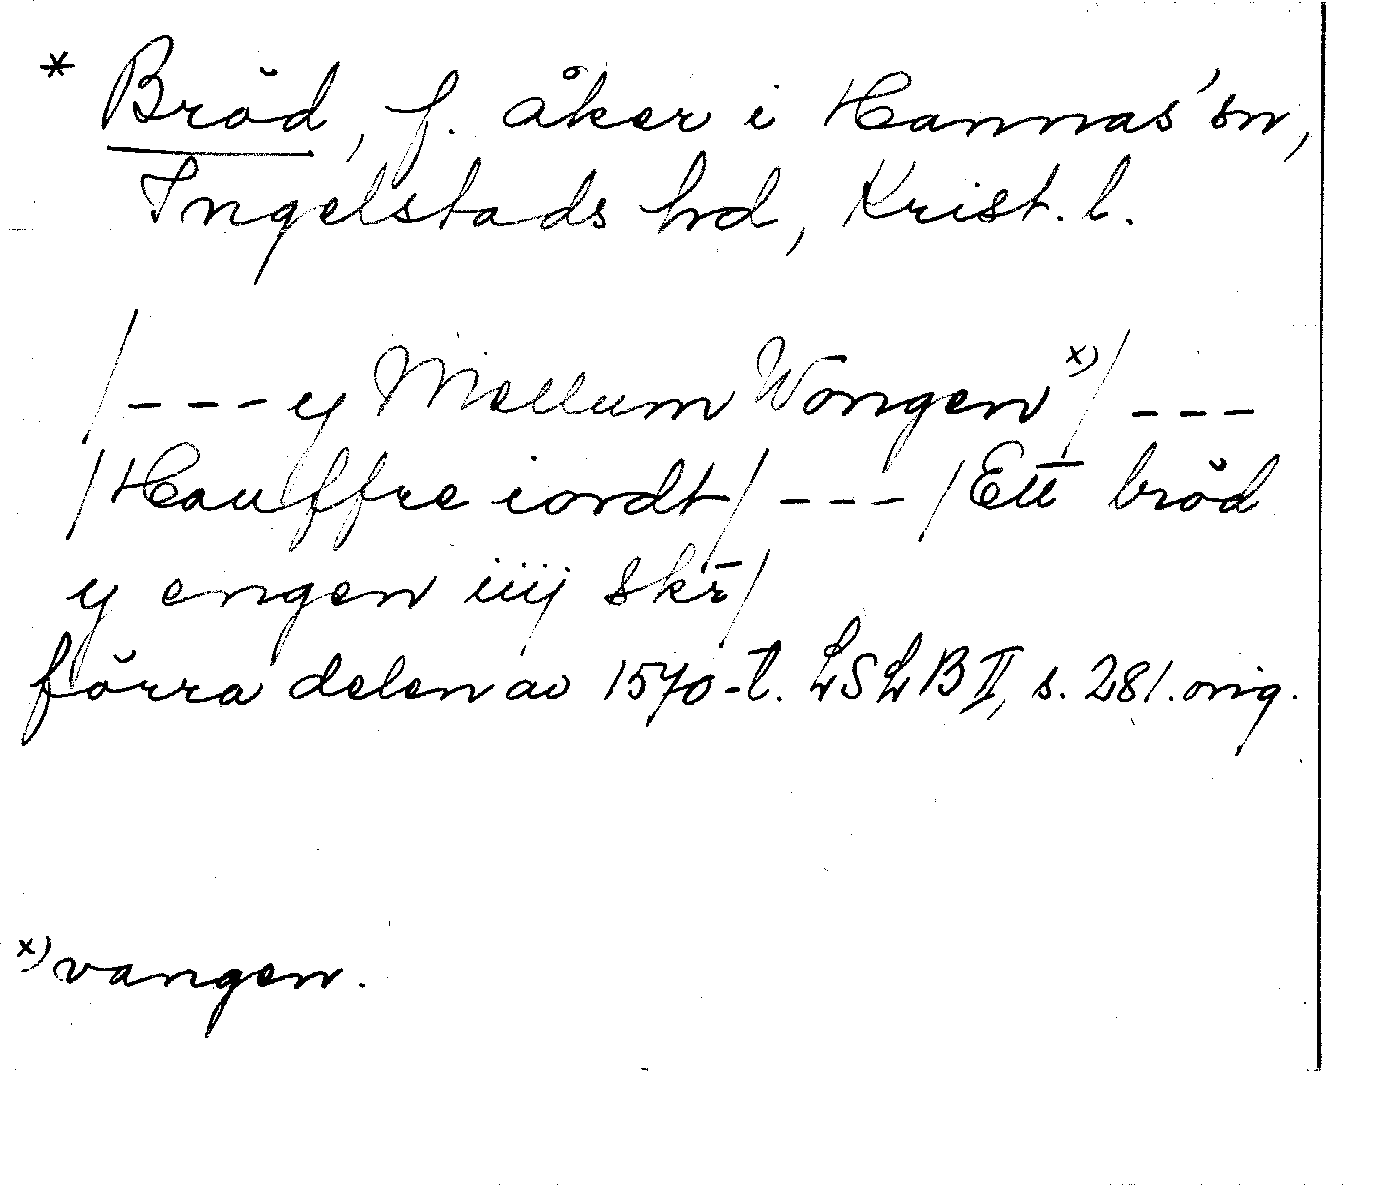 * Bröd, f. åker i Hannas' sn,
Ingelstads hd, Krist. l.
/---y Mellum Wongen x)/ ---
/Hauffre iordt/ --- /Ett bröd
y engen iiij skr̄/
förra delen av 1570-t. LSLB II, s. 281. orig.
x) vangen.